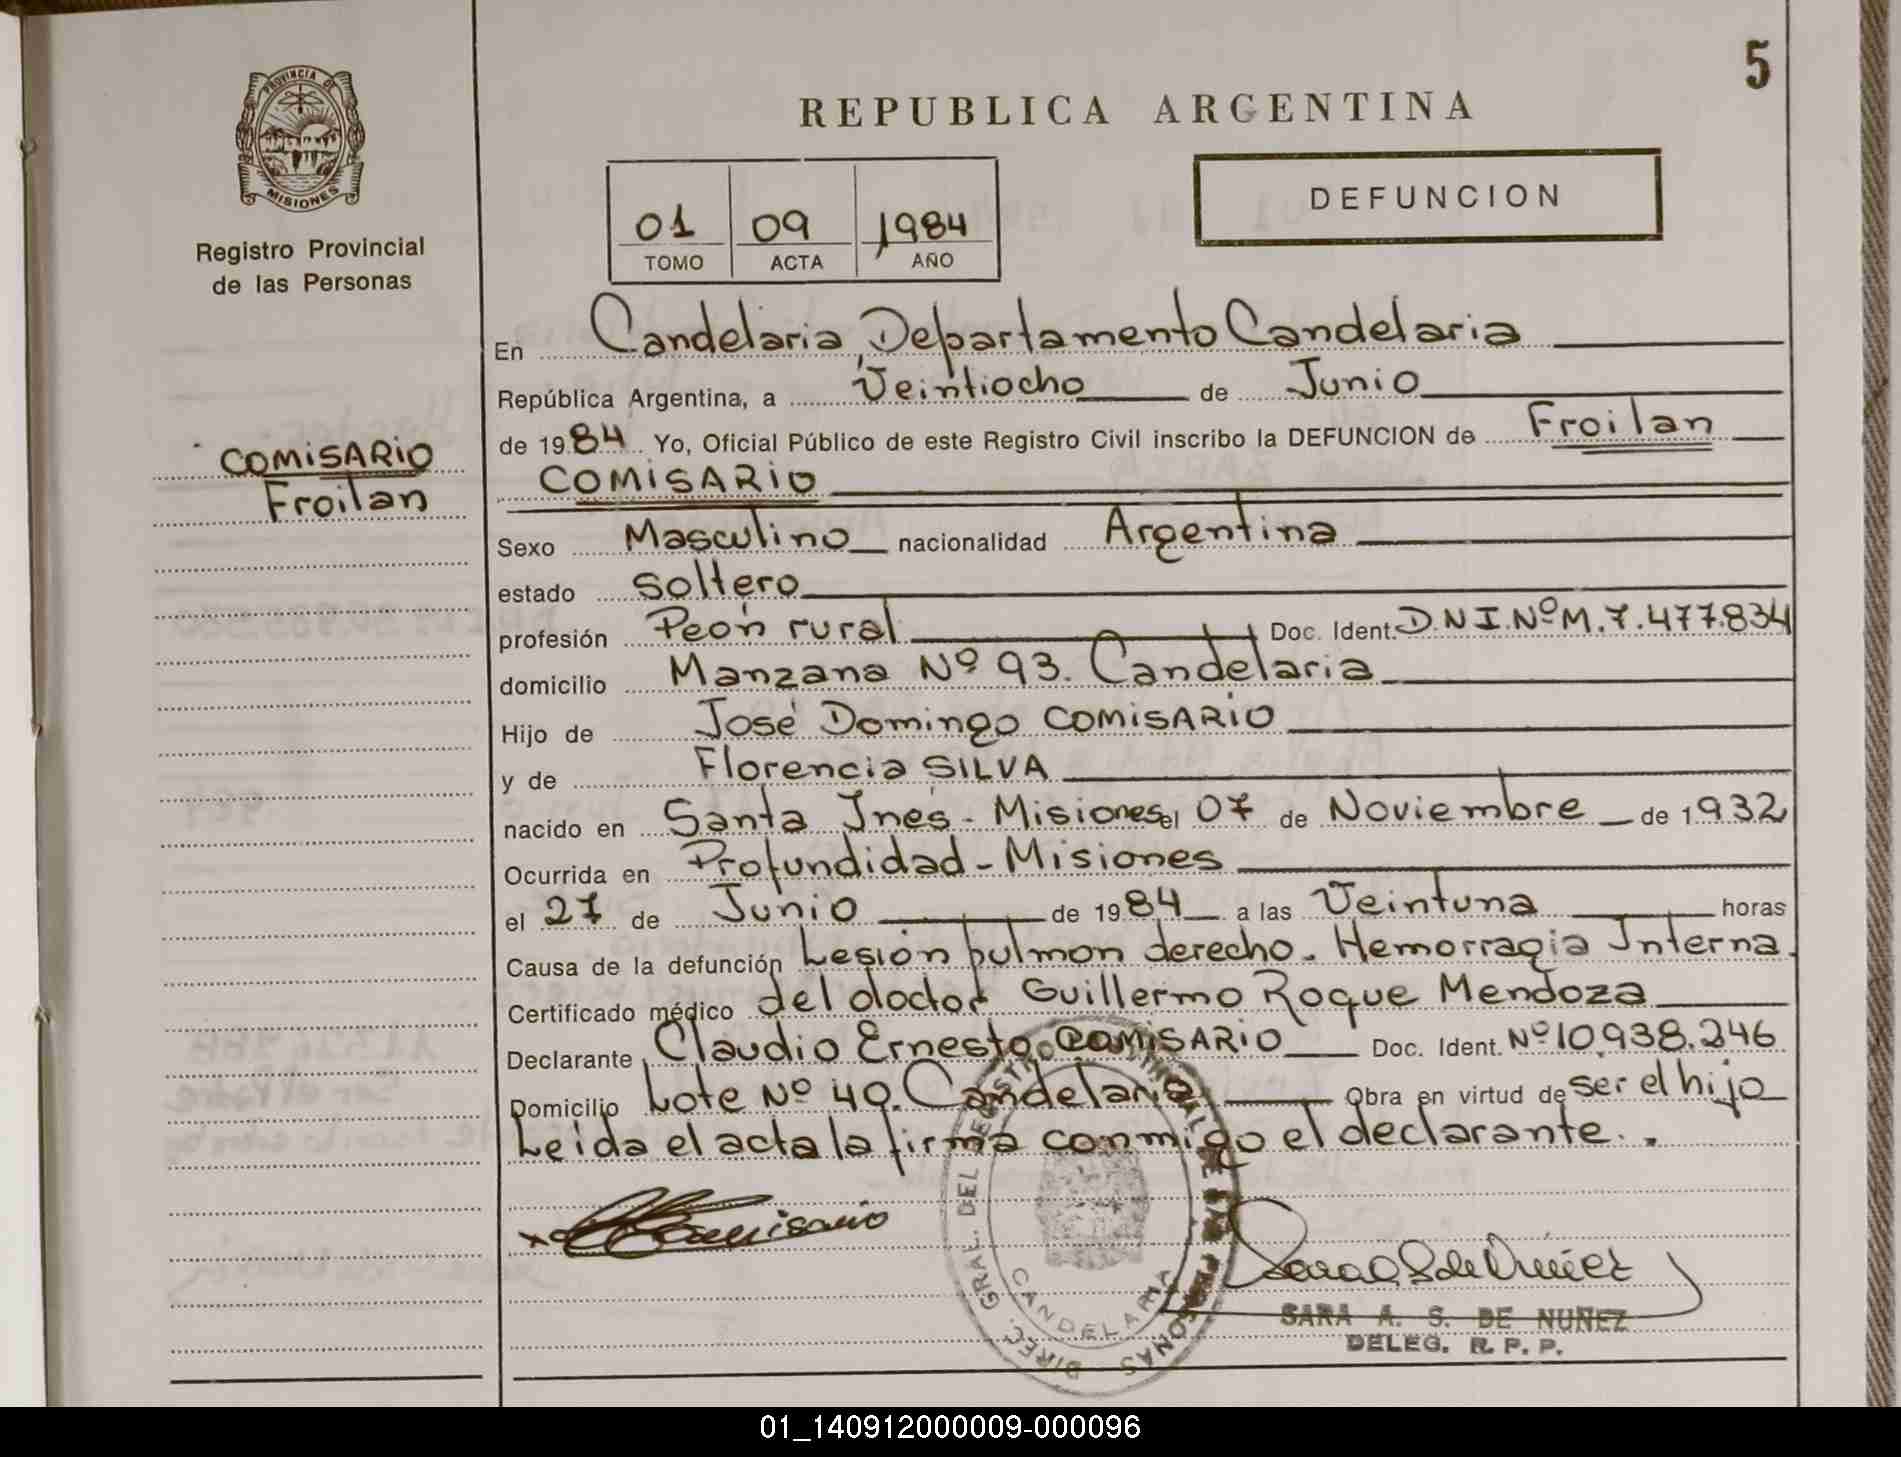 5
PROVINCIA DE
MISIONES
Registro Provincial
de las Personas
REPUBLICA ARGENTINA
01 09 1984
TOMO ACTA AÑO
DEFUNCION
COMISARIO
Froilan
En Candelaria, Departamento Candelaria
República Argentina, a Veintiocho de Junio
de 1984 Yo, Oficial Público de este Registro Civil inscribo la DEFUNCION de Froilan
COMISARIO
Sexo Masculino nacionalidad Argentina
estado soltero
profesión Peón rural Doc. Ident. D.N.I. Nº M.7.477.834
domicilio Manzana Nº 93. Candelaria
Hijo de José Domingo COMISARIO
y de Florencia SILVA
nacido en Santa Inés - Misiones el 07 de Noviembre de 1.932
Ocurrida en Profundidad - Misiones
el 27 de Junio de 1984 a las Veintuna horas
Causa de la defunción Lesión pulmon derecho. Hemorragia Interna.
Certificado médico del doctor Guillermo Roque Mendoza
Declarante Claudio Ernesto COMISARIO Doc. Ident. Nº 10.938.246
Domicilio Lote Nº 40. Candelaria Obra en virtud de ser el hijo
Leida el acta la firma conmigo el declarante..
x Comisario
DIREC. GRAL. DEL REGISTRO PROVINCIAL DE LAS PERSONAS
CANDELARIA
Sara A. S. de Nuñez
SARA A. S. DE NUÑEZ
DELEG. R. P. P.
01_140912000009-000096